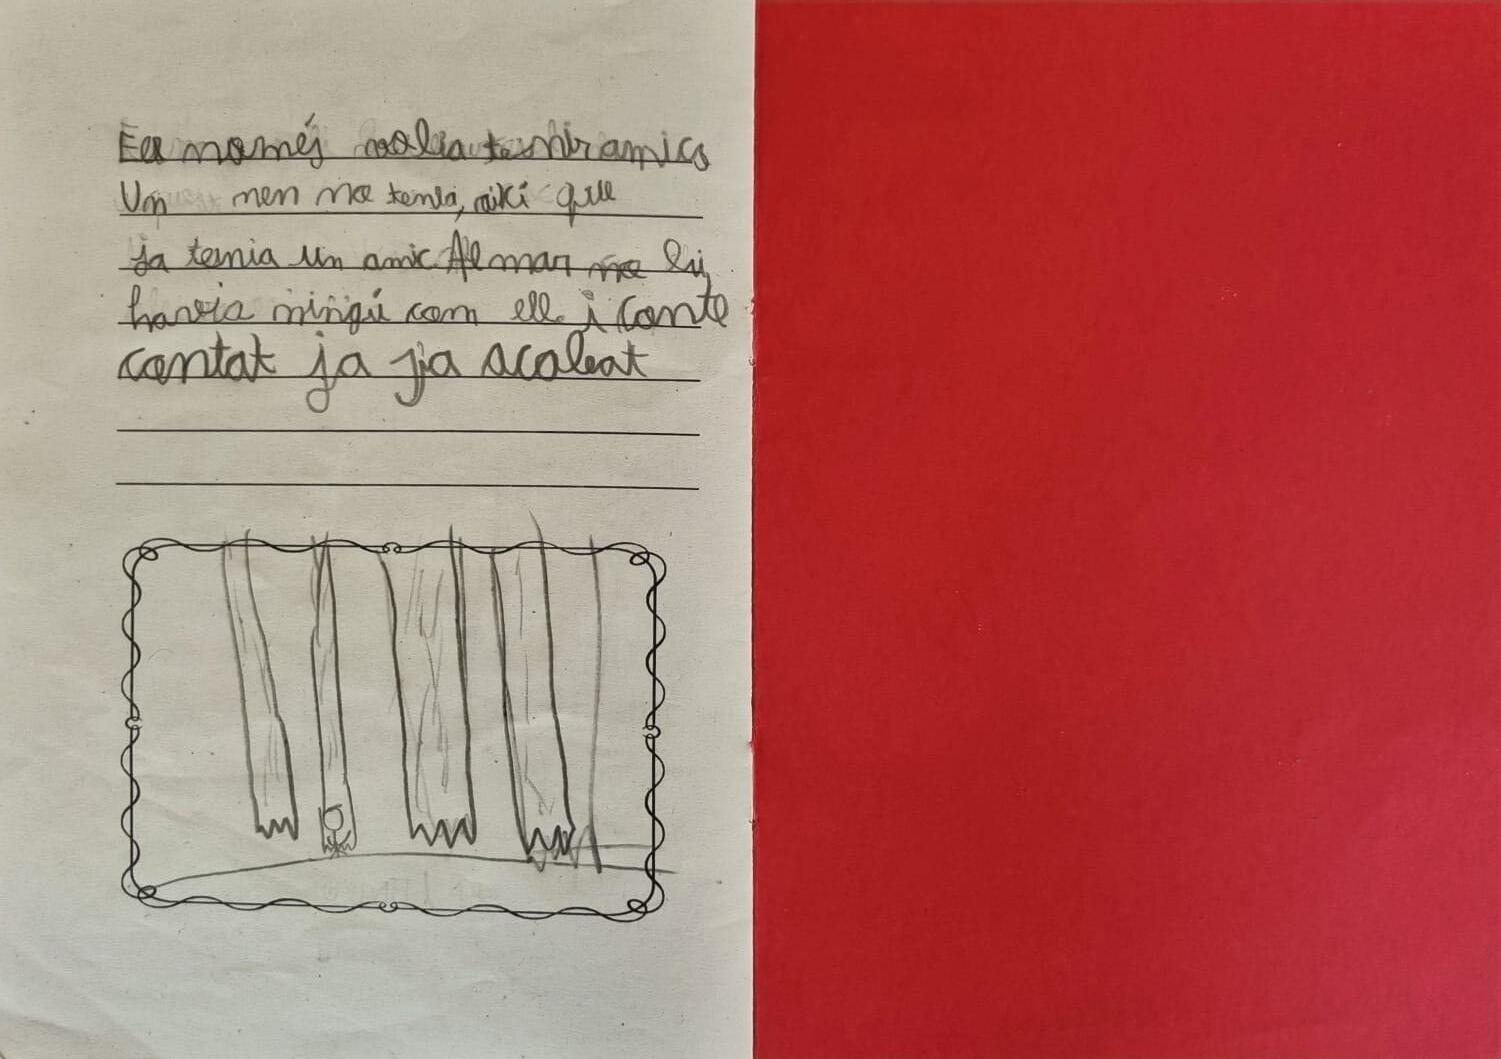 Ell només volia tenir amics
Un nen no tenia, aixi que
ja tenia un amic Al mar no li
havia ningú com ell i conte
contat ja ja acabat